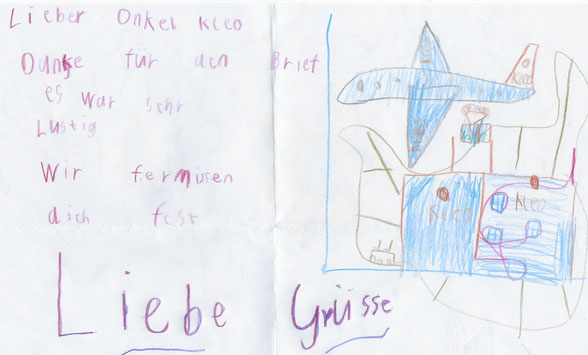 Lieber Onkel Kleo
Danke für den Brief
es war sehr
Lustig
Wir fermissen
dich fest
Liebe Grüsse
Kleo
Kleo
Kleo